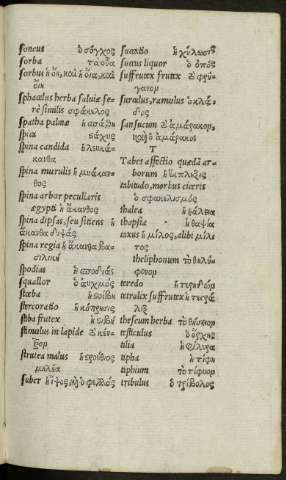 soncus ὁ σόγχος
sorba τὰ οὖα
sorbus ἡ ὄη, καὶ ἡ οἴα, καὶ
οἴη
sphacelus herba saluiæ fe=
rè similis σφάκελος
spatha palmæ ἡ σπάθη
spica στάχυς
spina candida ἡ λευκά=
κανθα
spina murilis ἡ μυάκαν=
θος
spina arbor peculiaris
ægypti ἡ ἄκανθος
spina dipsas, seu sitiens ἡ
ἄκανθα διψὰς
spina regia ἡ ἄκανθα βα=
σιλικὴ
spodias ἡ σποδιάς
squallor ὁ αὐχμός
stœba ἡ στοιβὴ
stercoratio ἡ κόπρισις
stiba frutex ἡ στιβὴ
stimulus in lapide
strutea malus ἡ στρούθιος
μηλέα
suber
suauis liquor ὁ ὀπός
suffrutex frutex
γανον
surculus, ramulus ὁ κλά=
δος
sansucum ἀμάρακον,
καὶ ὁ ἀμάρακος
T
Tabes affectio quædã ar=
borum
tabitudo, morbus ciceris
ὁ σφακελισμός
thalea ἡ θάλεια
thapsia ἡ θαψία
taxus ἡ μίλος, alibi μίλε
τος
theliphonum τὸ θηλύ=
φονον
teredo ἡ τερηδών
tetralix suffrutex ἡ τετρά
λιξ
theseum herba τὸ θήσειον
testiculus ὁ ὄρχις
tilia ἡ φίλυρα
tipha ἡ τίφη
tiphium τὸ τίφυον
tribulus ὁ τρίβολος